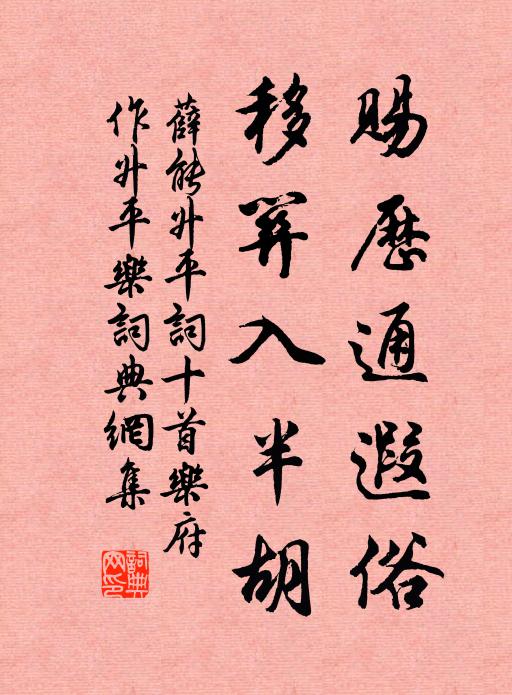 賜歷通遐俗
移關入半胡
薛能升平詞十首樂府
作升平樂詞典網集
詞典網印